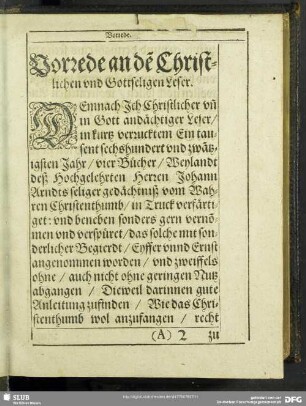 Vorrede.
Vorrede an dē Christ-
lichen vnd Gottseligen Leser.
DEmnach Ich Christlicher vñ
in Gott andächtiger Leser /
in kurtz verrucktem Ein tau-
sent sechshundert vnd zwätz-
igsten Jahr / vier Bücher / Weylandt
deß Hochgelehrten Herren Johann
Arndts seliger gedächtnuß vom Wah-
ren Christenthumb / in Truck verfärti-
get: vnd beneben sonders gern vernō-
men vnd verspüret / das solche mit son-
derlicher Begierdt / Eyffer vnnd Ernst
angenommen worden / vnd zweiffels
ohne / auch nicht ohne geringen Nutz
abgangen / Dieweil darinnen gute
Anleitung zufinden / Wie das Chri-
stenthumb wol anzufangen / recht
(A) 2 zu
SLUB
Wir führen Wissen.
DFG